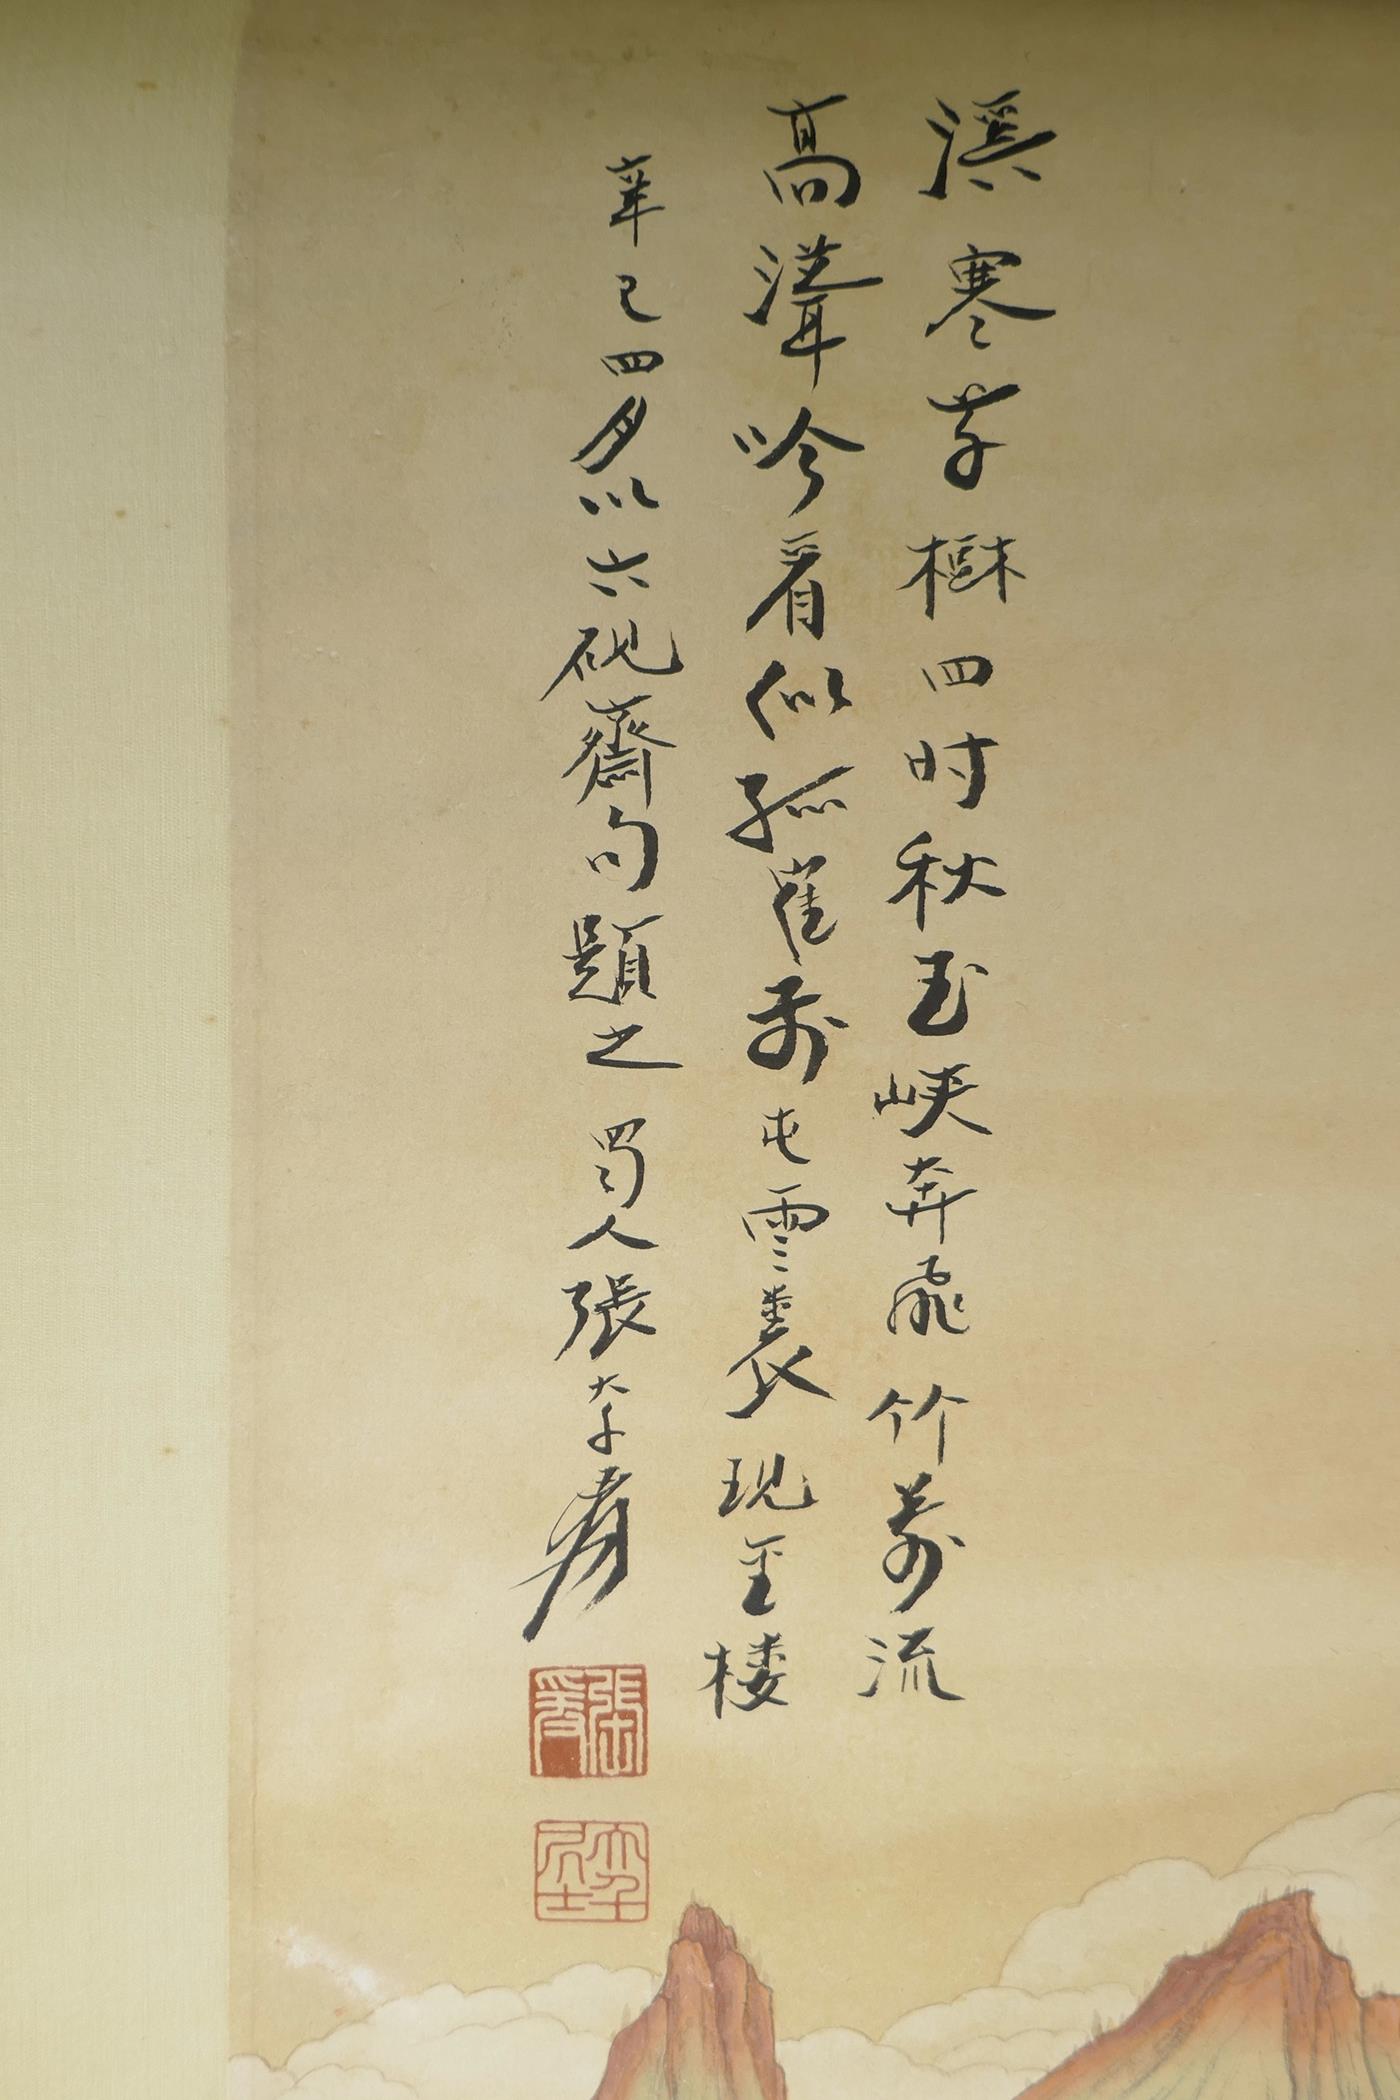 溪寒草樹四时秋玉峽奔飛竹箭流
高聳吟肩似孤隺屯雲裏现玉楼
辛巳四月以六硯齋句題之 蜀人張大千爰
張爰
大千居士